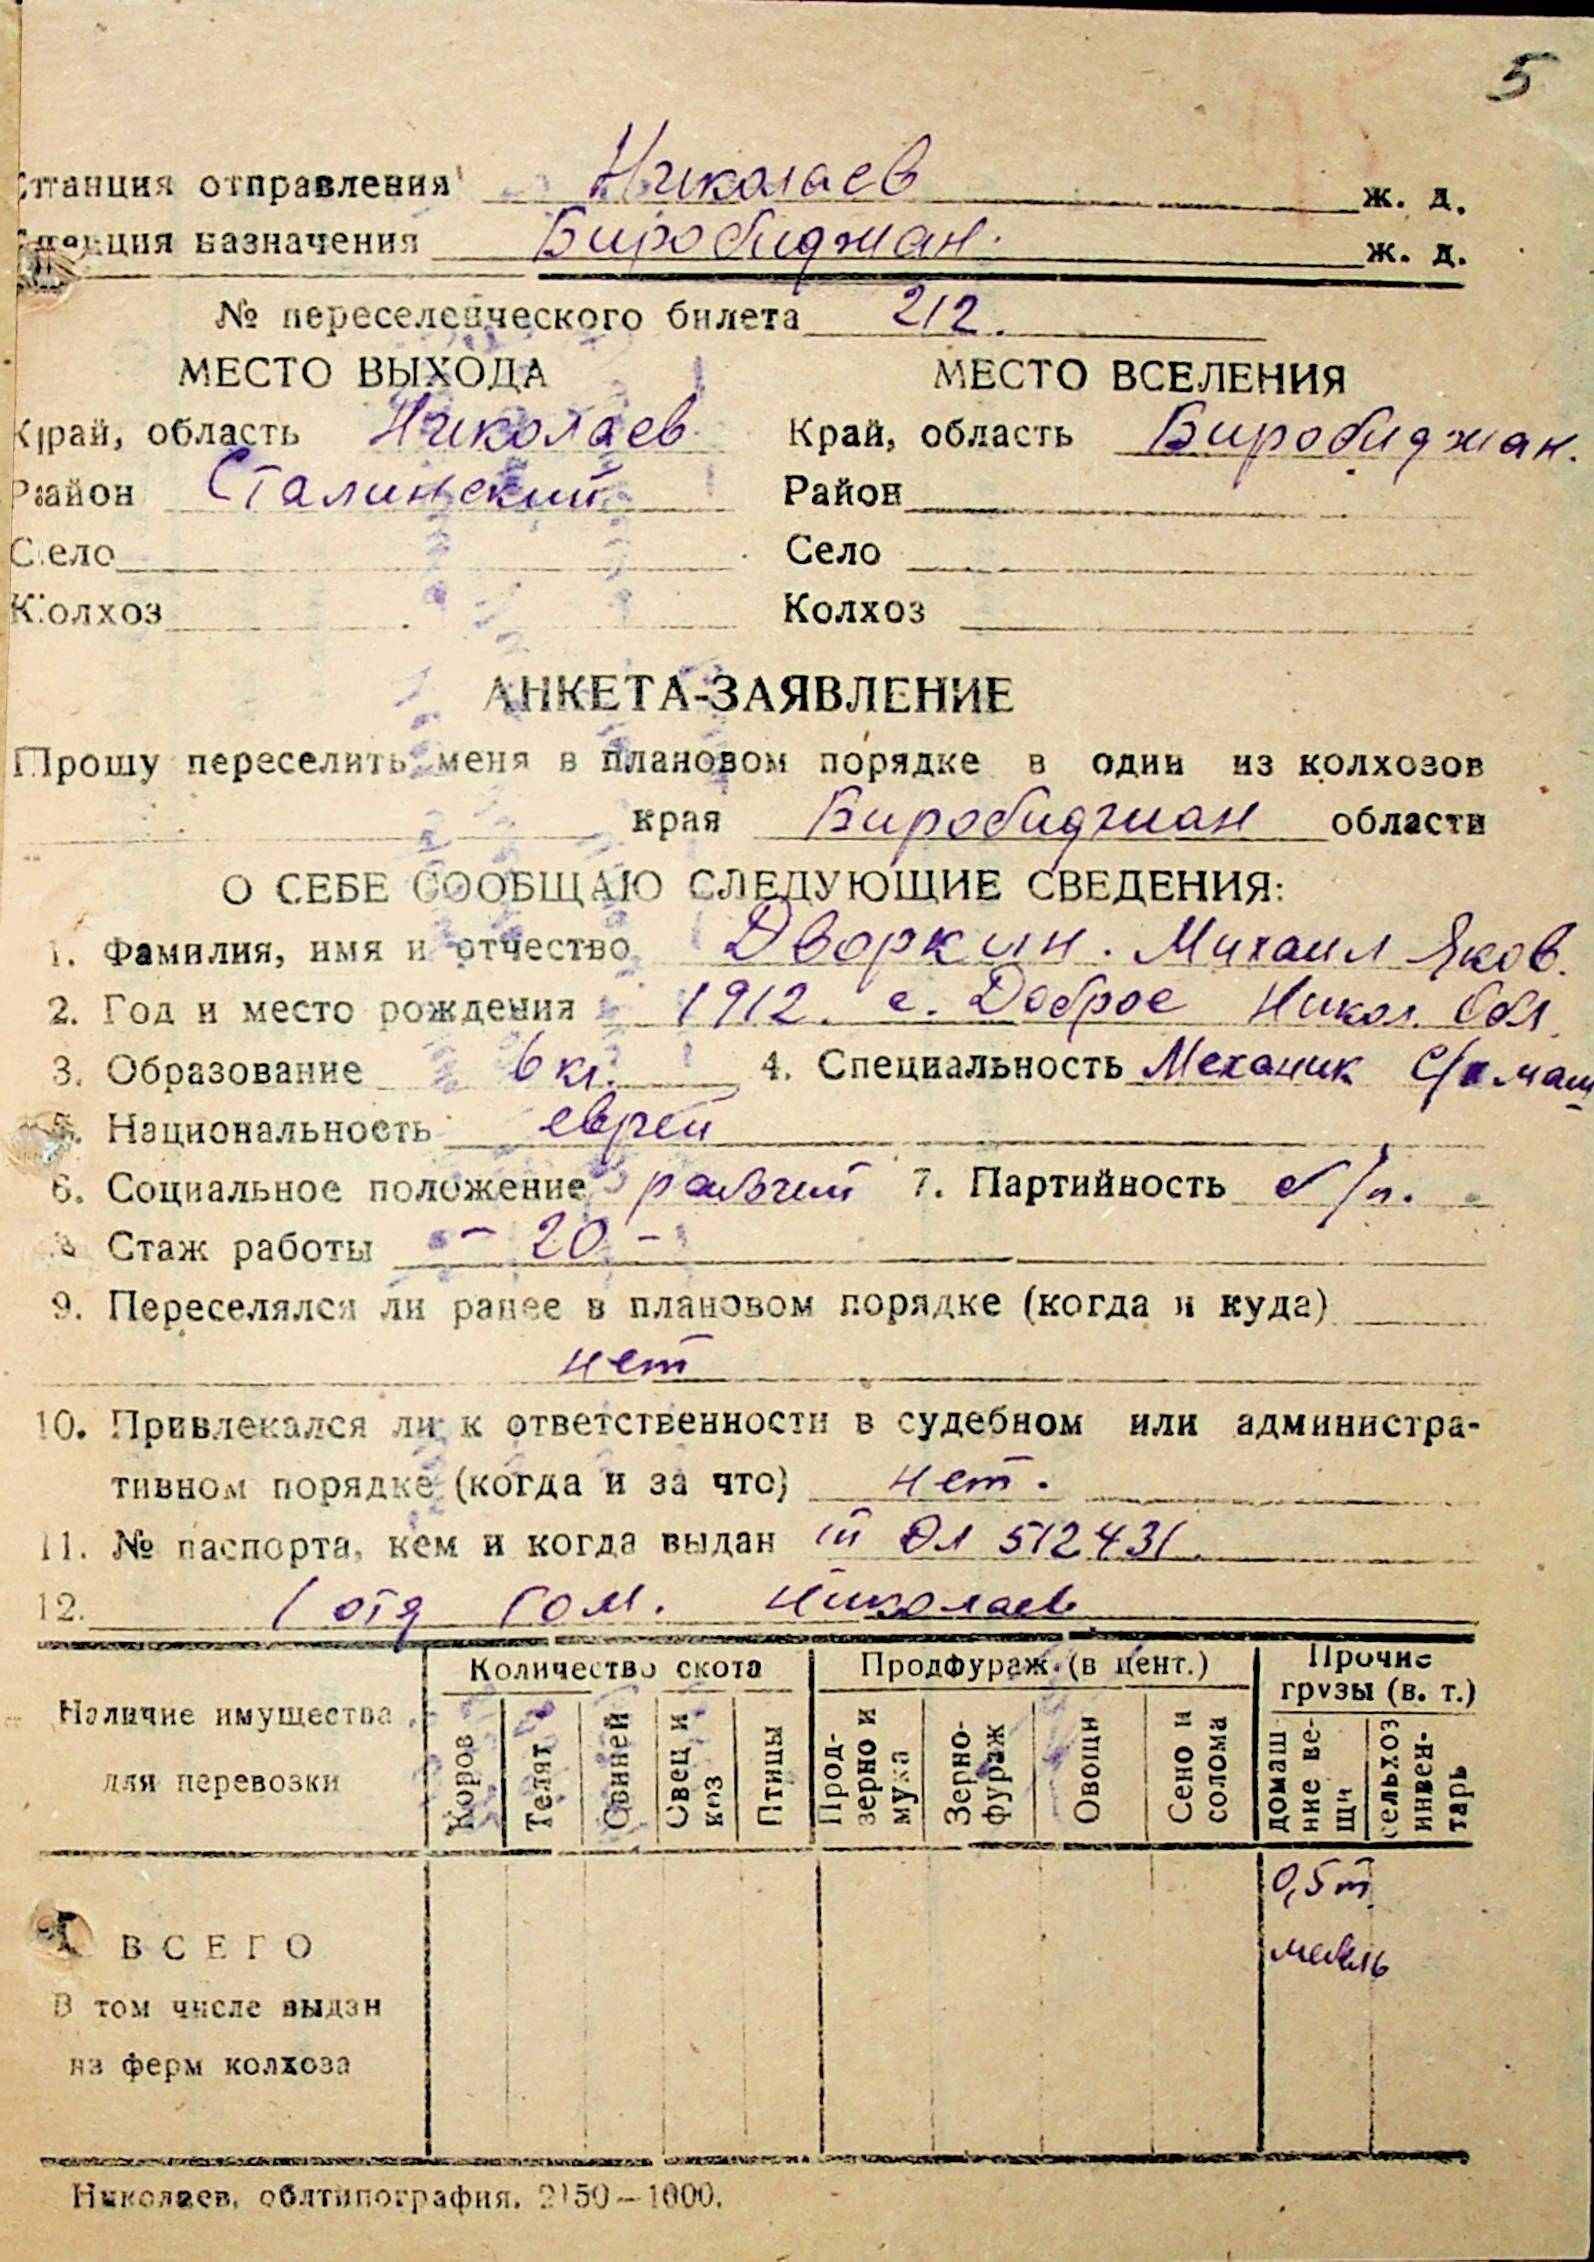 5
Станция отправления Николаев ж. д.
Станция назначения Биробиджан. ж. д.
№ переселенческого билета 212.
МЕСТО ВЫХОДА МЕСТО ВСЕЛЕНИЯ
Край, область Николаев Край, область Биробиджан.
Район Сталинский Район
Село Село
Колхоз Колхоз
АНКЕТА-ЗАЯВЛЕНИЕ
Прошу переселить меня в плановом порядке в один из колхозов
края Биробиджан области
О СЕБЕ СООБЩАЮ СЛЕДУЮЩИЕ СВЕДЕНИЯ:
1. Фамилия, имя и отчество Дворкин. Михаил Яков.
2. Год и место рождения 1912. с. Доброе Никол. Обл.
3. Образование 6 кл. 4. Специальность Механик с/х маш
5. Национальность еврей
6. Социальное положение рабочий 7. Партийность б/п.
8. Стаж работы - 20 -
9. Переселялся ли ранее в плановом порядке (когда и куда)
нет
10. Привлекался ли к ответственности в судебном или администра-
тивном порядке (когда и за что) нет.
11. № паспорта, кем и когда выдан 512431.
12. 1 отд ГОМ. Николаев
Наличие имущества для перевозки
Количество скота
Продфураж (в цент.)
Прочие грузы (в. т.)
Коров
Телят
Свиней
Овец и коз
Птицы
Прод-зерно и мука
Зерно-фураж
Овощи
Сено и солома
домашние ве-щи
сельхоз инвен-тарь
0,5 т.
мебель
ВСЕГО
В том числе выдан
из ферм колхоза
Николаев, облтипография. 2150—1000.